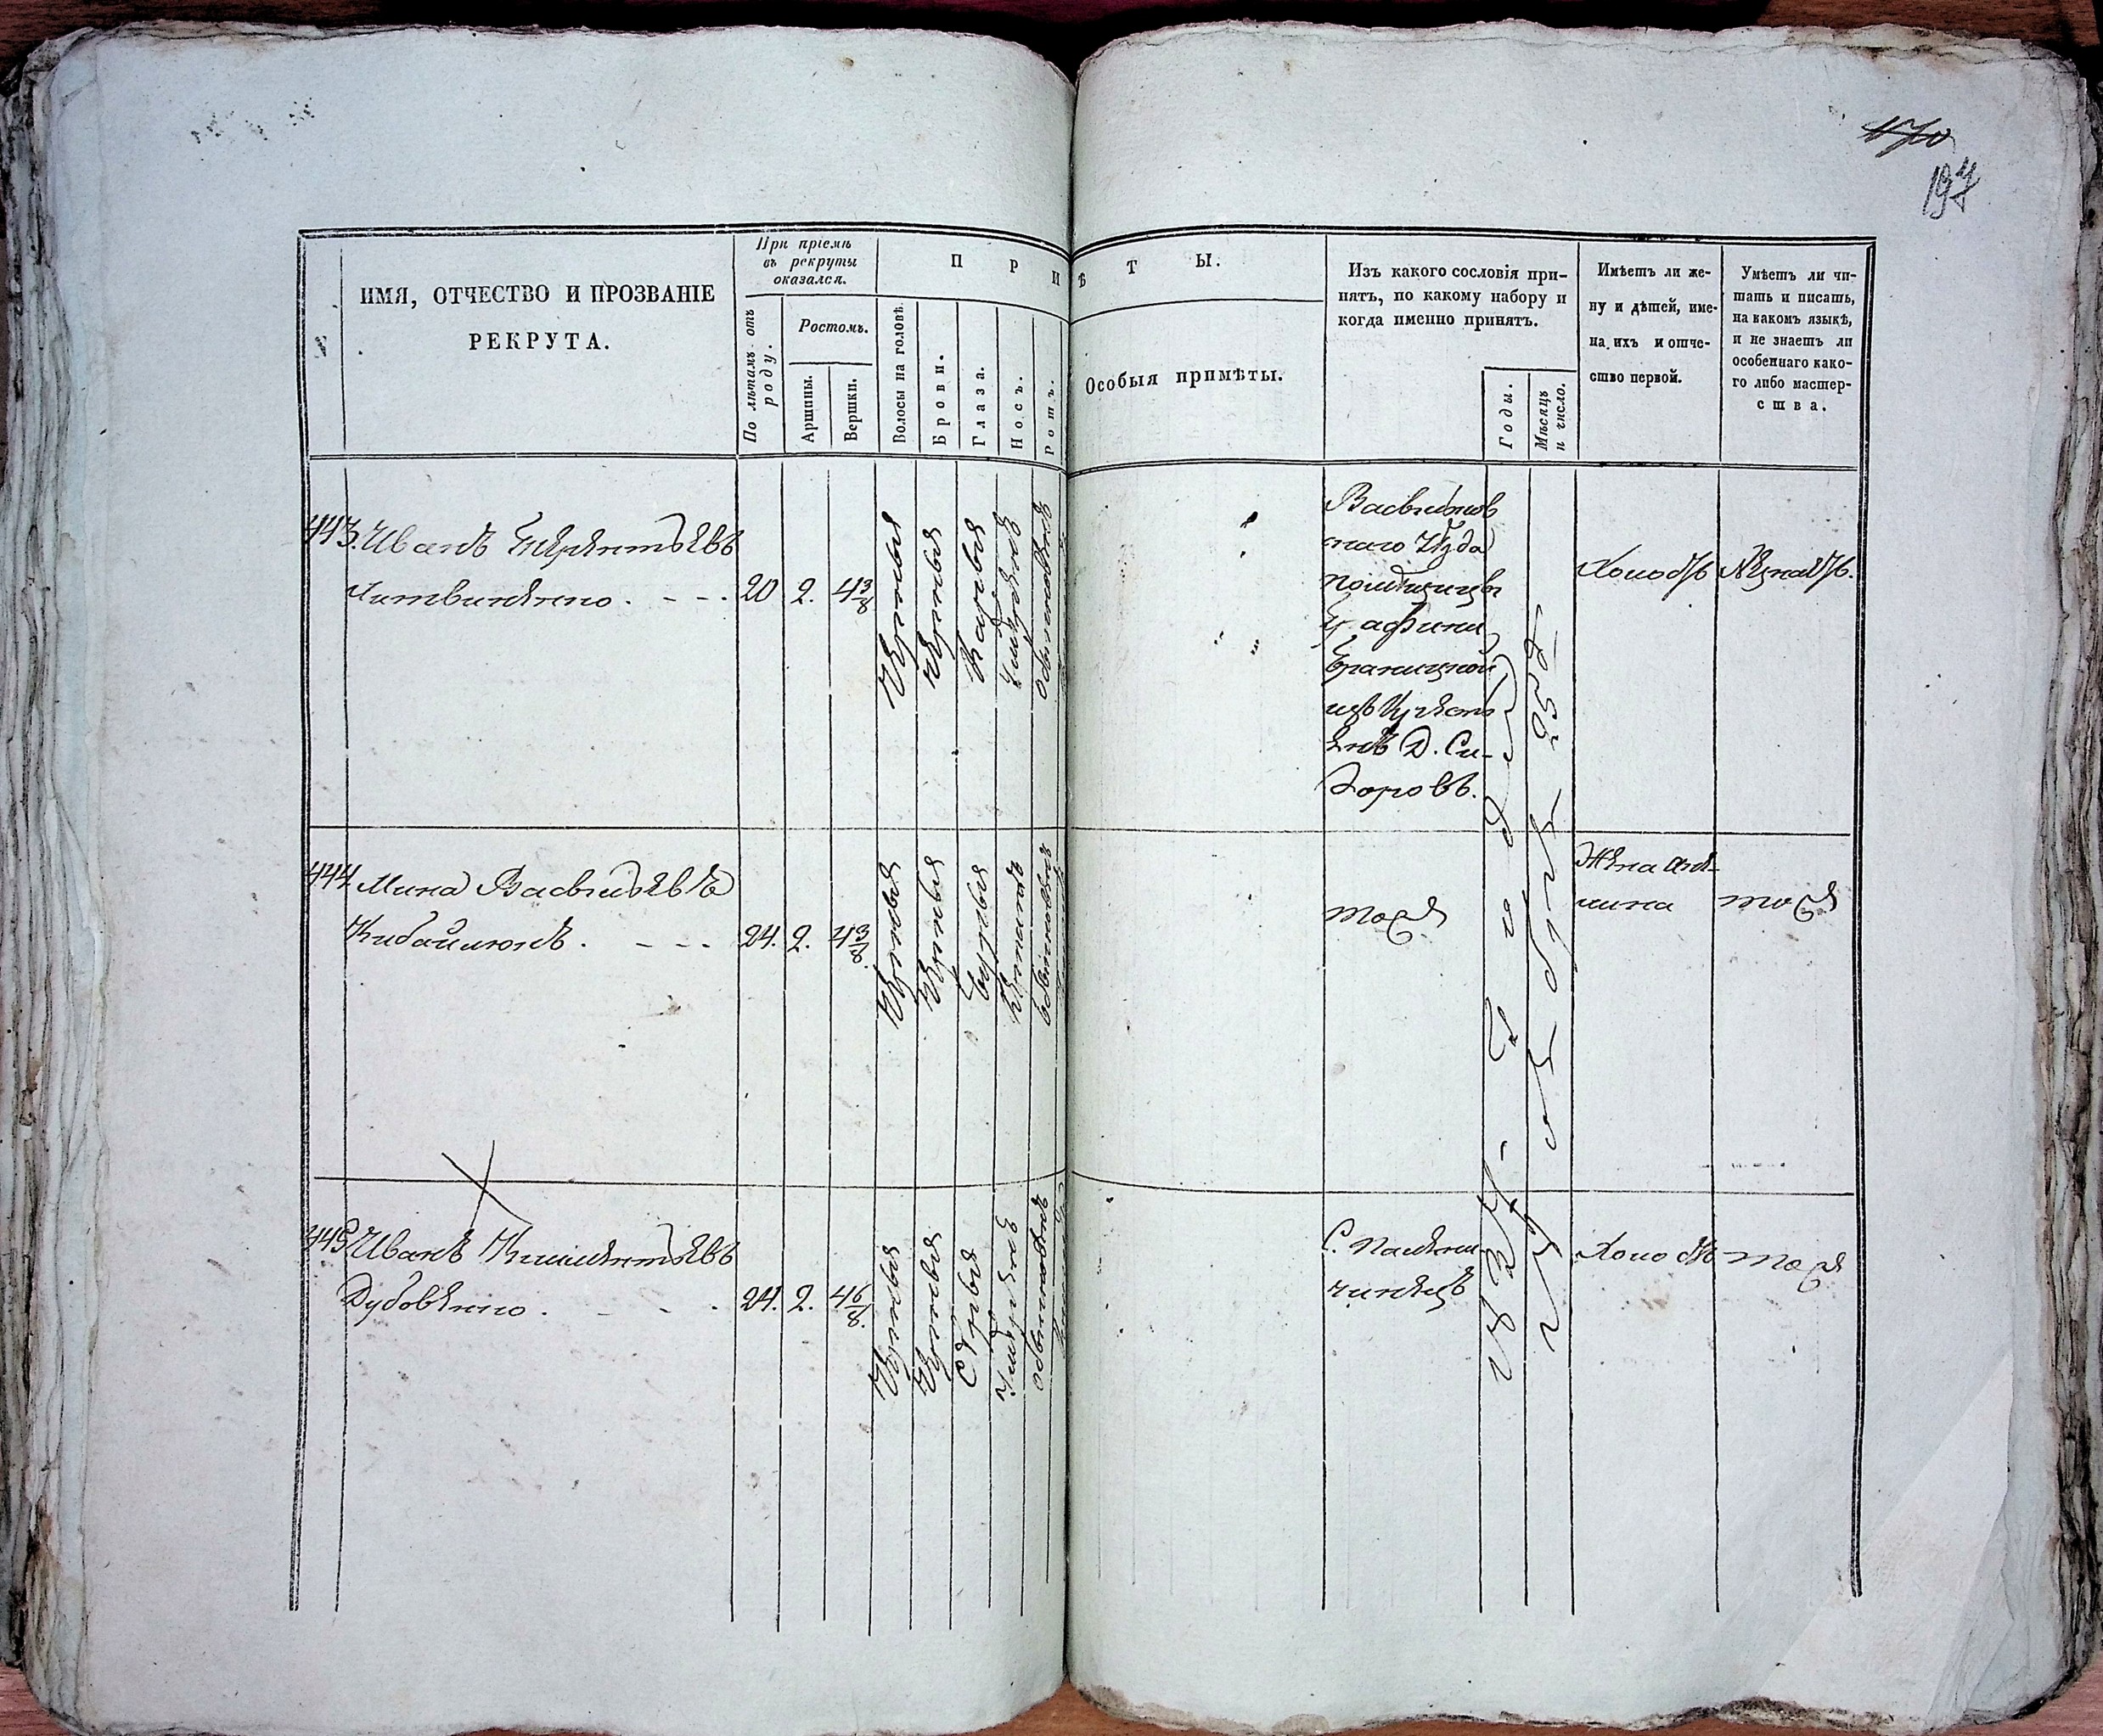 170
197
ИМЯ, ОТЧЕСТВО И ПРОЗВАНІЕ
РЕКРУТА.
При пріемѣ
въ рекруты
оказался.
По лѣтамъ отъ
роду.
Ростомъ.
Аршины.
Вершки.
П Р И М Ѣ Т Ы.
Волосы на головѣ.
Брови.
Глаза.
Носъ.
Ротъ.
Особыя примѣты.
Изъ какого сословія при-
нятъ, по какому набору и
когда именно принятъ.
Годы.
Мѣсяцъ
и число.
Имѣетъ ли же-
ну и дѣтей, име-
на ихъ и отче-
ство первой.
Умѣетъ ли чи-
тать и писать,
на какомъ языкѣ,
и не знаетъ ли
особеннаго како-
го либо мастер-
ства.
443. Иванъ Терентьевъ
Литвиненко. - - -
20
2.
4 3/8
Черныя
Черныя
Каріыя
Умѣренъ
обыкновенъ
Васильков
скаго Уѣзда
помѣщицы
Графини
Браницкой
изъ Крестъ
янъ Д. Си-
доровъ.
1834 - Года
25д
Холостъ
Незнаетъ.
444. Мина Васильевъ
Кибайлюкъ. - - -
24.
2.
4 3/8.
Черныя
Черныя
обыкновенъ
тоже
Жена
тоже
445. Иванъ Климентьевъ
Дубовенко. - - -
24.
2.
4 6/8.
Черныя
Черныя
Сѣрыя
Умѣренъ
обыкновенъ
С.
Холостъ
тоже